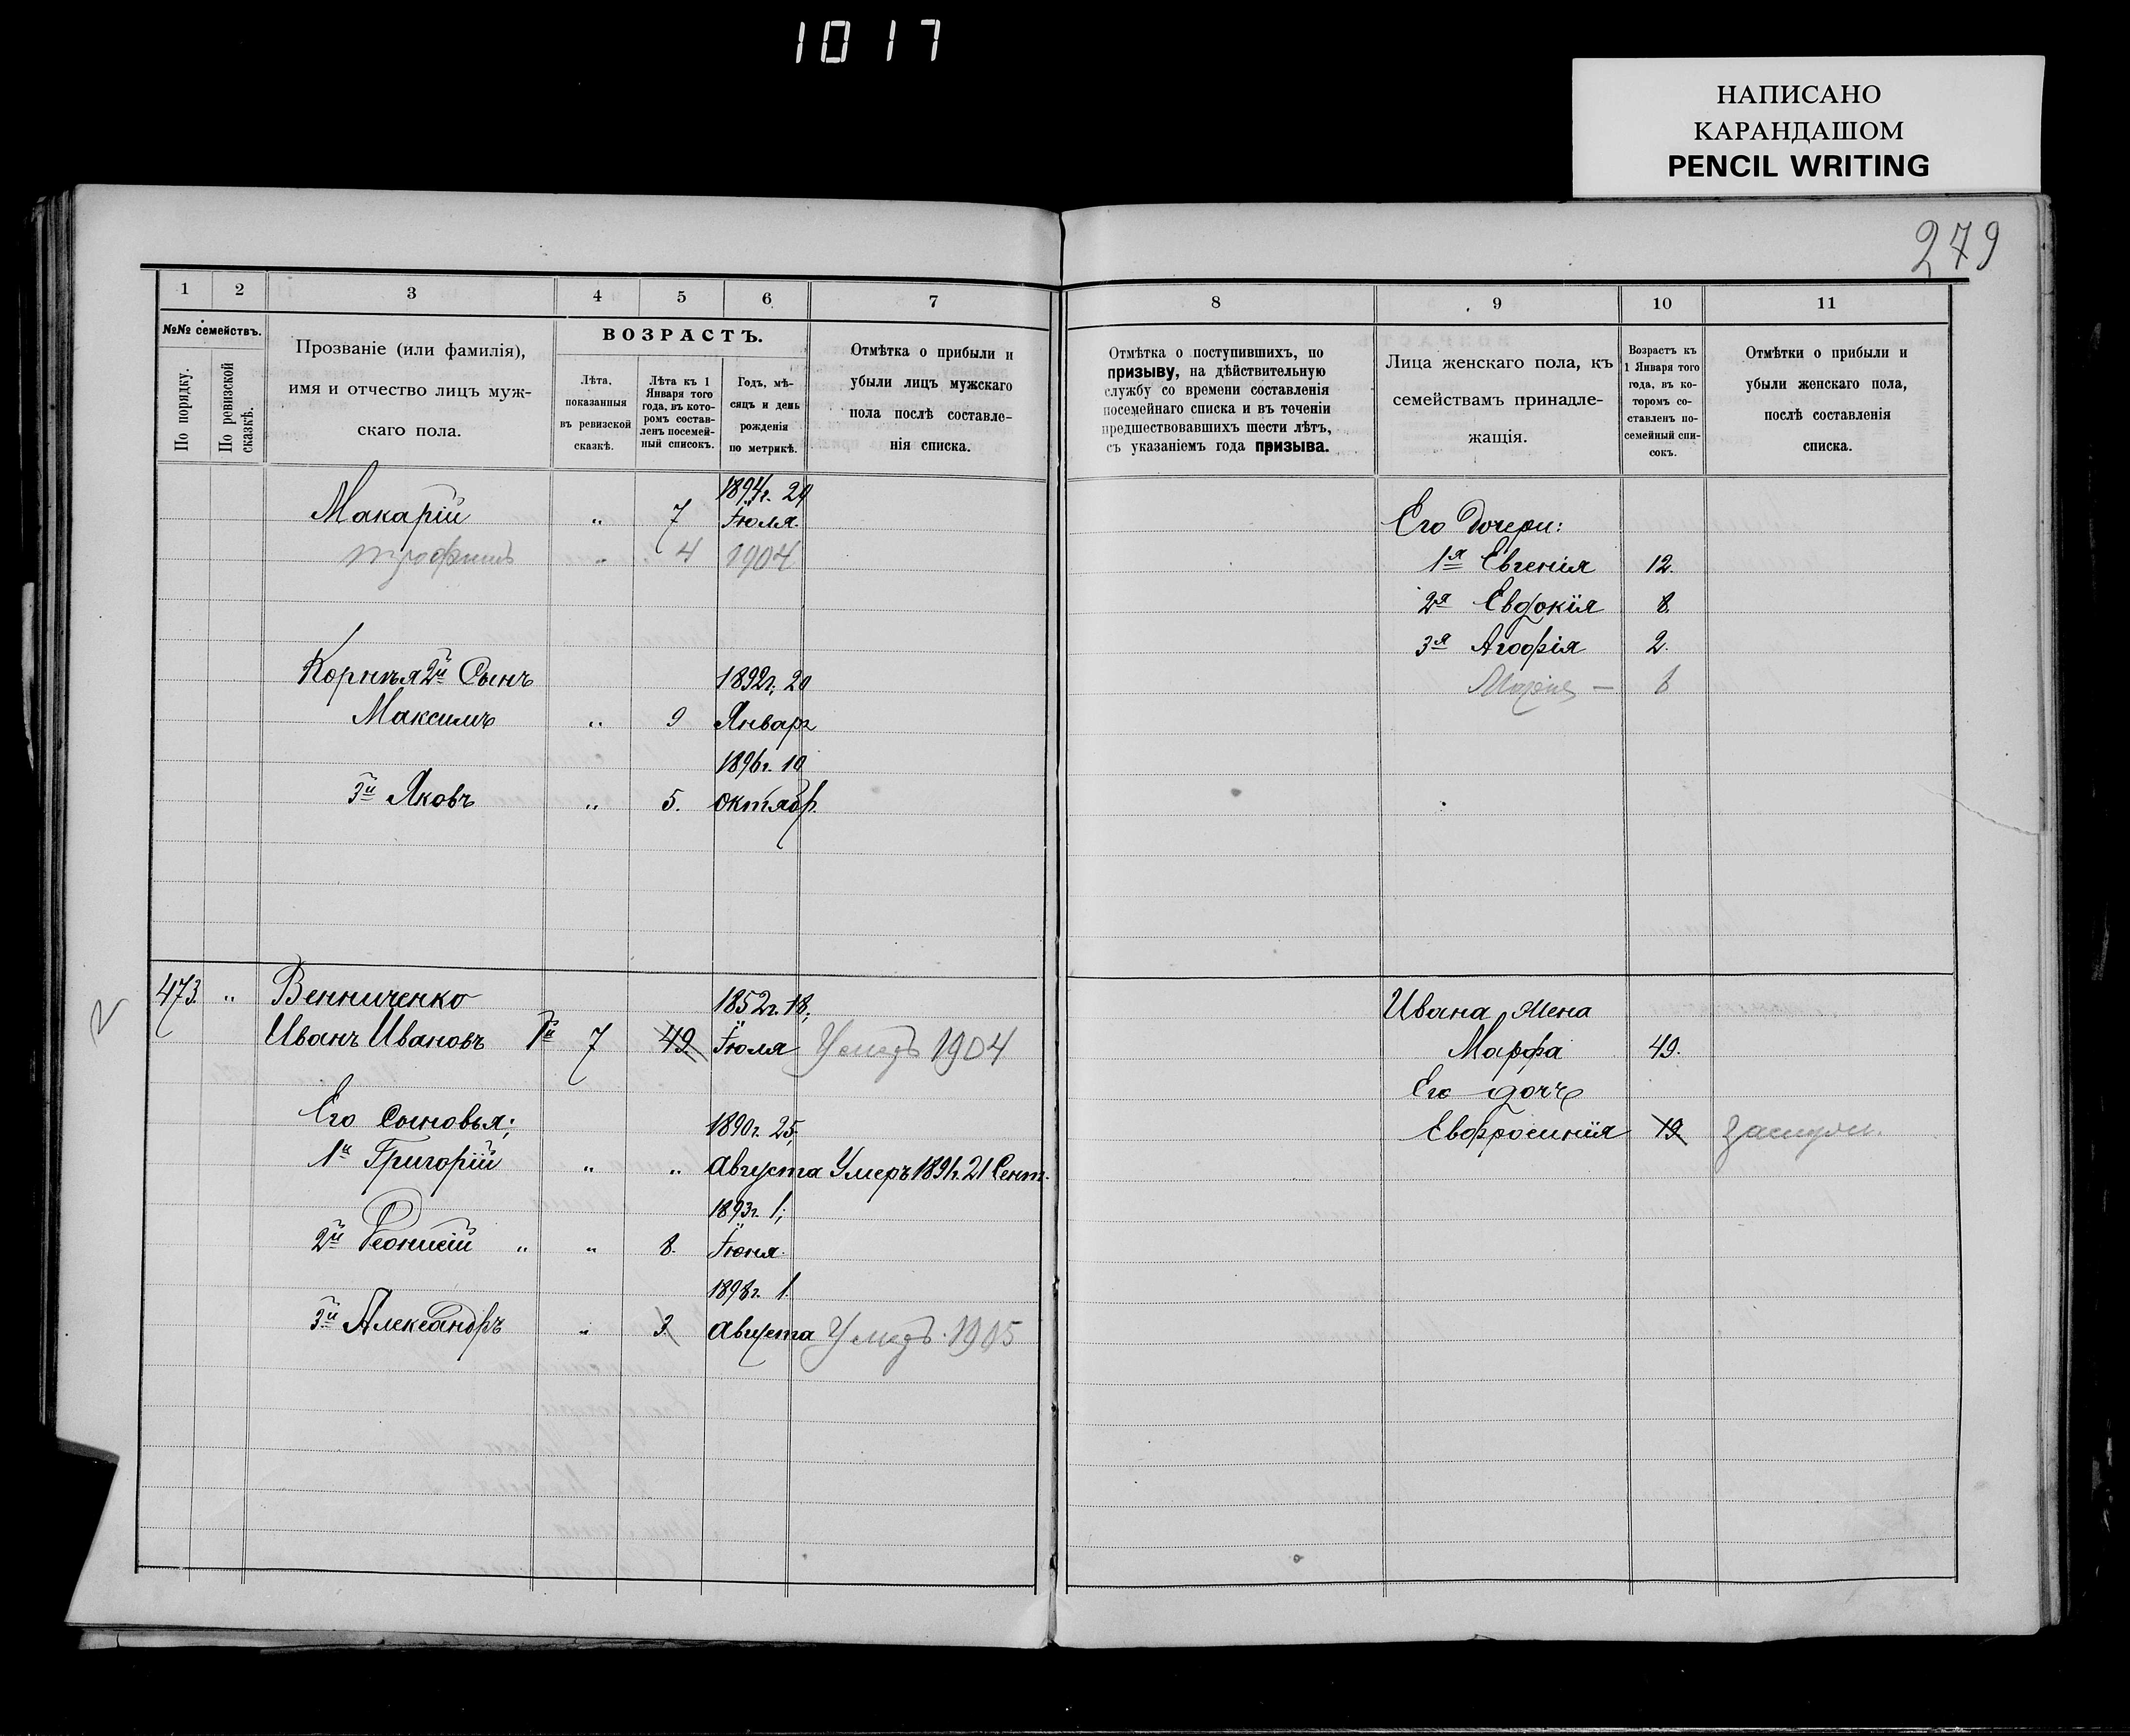 1017
НАПИСАНО
КАРАНДАШОМ
PENCIL WRITING
279
1 2 3 4 5 6 7
№№ семействъ.
По порядку.
По ревизской сказкѣ.
Прозваніе (или фамилія),
имя и отчество лицъ муж-
скаго пола.
ВОЗРАСТЪ.
Лѣта,
показанныя
въ ревизской
сказкѣ.
Лѣта къ 1
Января того
года, въ кото-
ромъ состав-
ленъ посемей-
ный списокъ.
Годъ, мѣ-
сяцъ и день
рожденія
по метрикѣ.
Отмѣтка о прибыли и
убыли лицъ мужскаго
пола послѣ составле-
нія списка.
1894г. 20
Макарій " 7 Іюля.
Трофимъ " 4 1904
Корнѣя 2й Сынъ 1892г. 20
Максимъ " 9 Январ
1896г. 10
3й Яковъ " 5. Октябр.
473. " Венниченко 1852г. 18,
Иванъ Ивановъ 1й 7 49 Іюля Умеръ 1904
Его Сыновья: 1890г. 25,
1й Григорій " " Августа Умеръ 1891г. 21 Сент.
1893г. 1,
2й Леонтій " " 8. Іюня.
1898г. 1.
3й Александръ " 3 Августа Умеръ. 1905
8 9 10 11
Отмѣтка о поступившихъ, по
призыву, на дѣйствительную
службу со времени составленія
посемейнаго списка и въ теченіи
предшествовавшихъ шести лѣтъ,
съ указаніемъ года призыва.
Лица женскаго пола, къ
семействамъ принадле-
жащія.
Возрастъ къ
1 Января того
года, въ ко-
торомъ со-
ставленъ по-
семейный спи-
сокъ.
Отмѣтки о прибыли и
убыли женскаго пола,
послѣ составленія
списка.
Его Дочери:
1я Евгенія 12.
2я Евдокія 8.
3я Агафія 2.
Марія — 8
Ивана Жена
Марфа 49.
Его дочь
Евфросинія 19 Замужем.